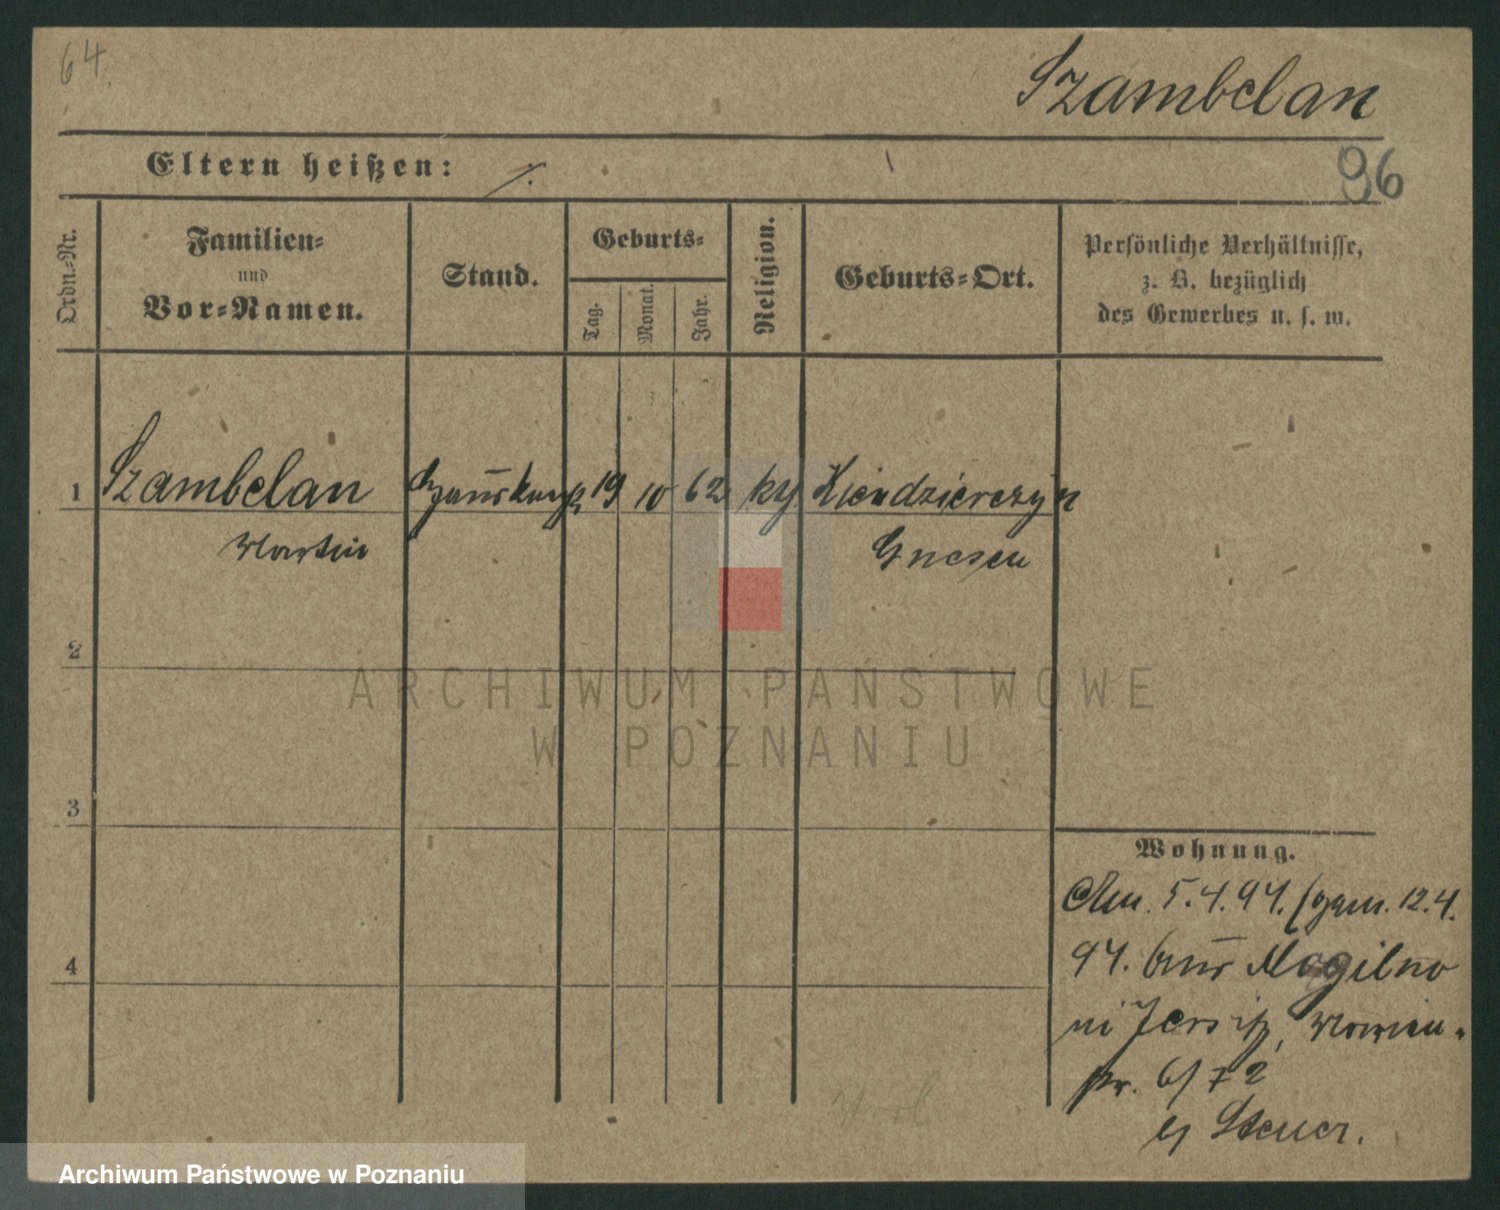 64.
Szambelan
Eltern heißen: ./.
96
Ordn.-Nr.
Familien-
und
Vor-Namen.
Stand.
Geburts-
Tag.
Monat.
Jahr.
Religion.
Geburts-Ort.
Persönliche Verhältnisse,
z. B. bezüglich
des Gewerbes u. s. w.
1 Szambelan 19 10 62 Kiendzierczyn
Martin Gnesen
2
ARCHIWUM PAŃSTWOWE
W POZNANIU
3
Wohnung.
5.4.94. 12.4.
4
94. aus Mogilno
in Jersitz,
pr. 6/72
bei Steuer.
Archiwum Państwowe w Poznaniu